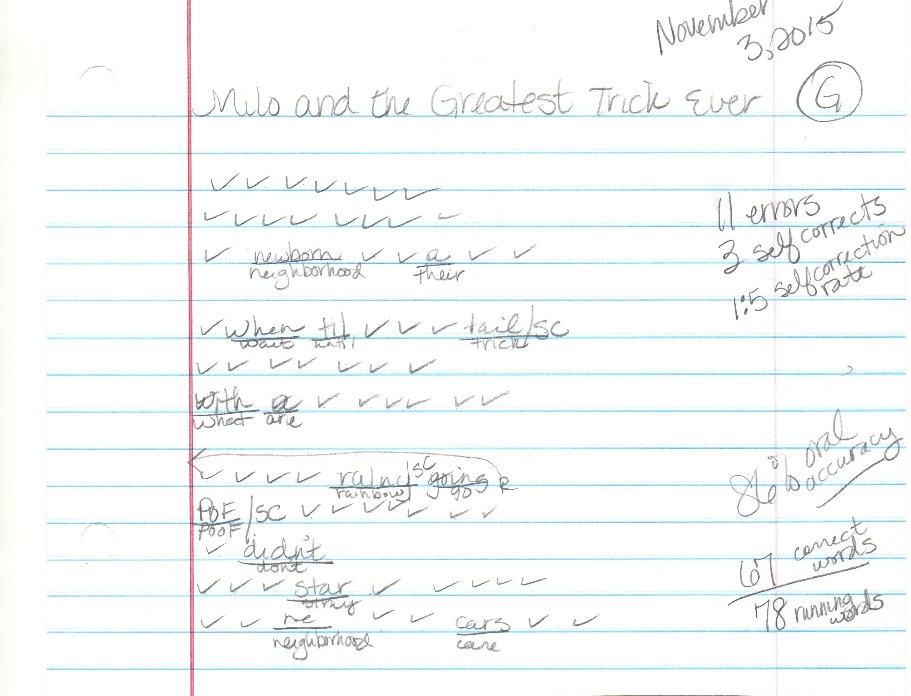 November
3, 2015
Milo and the Greatest Trick Ever G
✓ ✓ ✓ ✓ ✓ ✓ ✓
✓ ✓ ✓ ✓ ✓ ✓ ✓ ✓ ✓
✓ newborn ✓ ✓ a ✓ ✓
neighborhood their
✓ when til ✓ ✓ ✓ tail/SC
wait until trick
✓ ✓ ✓ ✓ ✓ ✓ ✓
with a ✓ ✓ ✓ ✓ ✓ ✓
what are
✓ ✓ ✓ ✓ rainy/SC going R
rainbow go
POF/SC ✓ ✓ ✓ ✓ ✓ ✓ ✓
POOF
✓ didn't
dont
✓ ✓ ✓ star ✓ ✓ ✓ ✓ ✓
stray
✓ ✓ ne ✓ ✓ cars ✓ ✓
neighborhood care
11 errors
3 self corrects
1:5 self correction
rate
86% oral
accuracy
67 correct
words
78 running
words